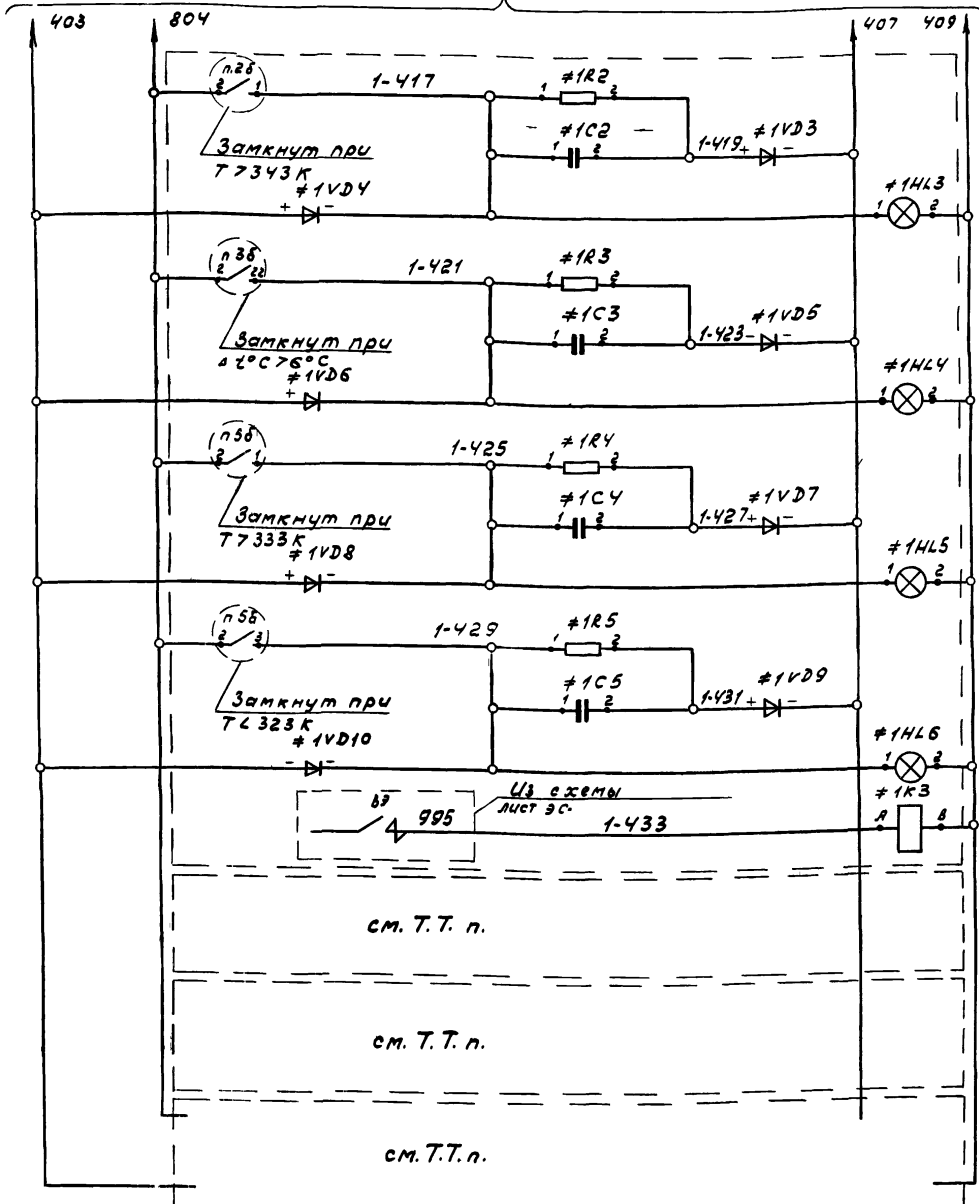 403 804 407 409
п.2б
2 1 1-417 1 ≠1R2 2
≠1C2
1 2 1-419 + ≠1VD3 -
Замкнут при
T > 343 K
≠1VD4
+ - 1 ≠1HL3 2
п 3б
2 22 1-421 1 ≠1R3 2
≠1C3
1 2 1-423 - ≠1VD5 -
Замкнут при
Δt°C > 6°C
≠1VD6
+ - 1 ≠1HL4 2
п 5б
2 1 1-425 1 ≠1R4 2
≠1C4
1 2 1-427 + ≠1VD7 -
Замкнут при
T > 333 K
≠1VD8
+ - 1 ≠1HL5 2
п 5б
2 3 1-429 1 ≠1R5 2
≠1C5
1 2 1-431 + ≠1VD9 -
Замкнут при
T < 323 K
≠1VD10
- - 1 ≠1HL6 2
Из схемы
лист ЭС-
ВЭ 995 1-433 A ≠1K3 B
см. Т.Т. п.
см. Т.Т. п.
см. Т.Т. п.